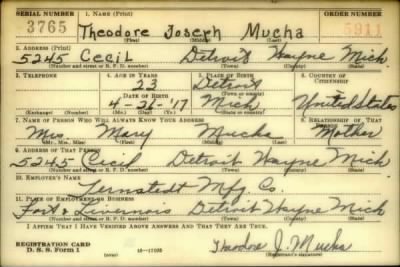 SERIAL NUMBER 1. NAME (Print) ORDER NUMBER
3765 Theodore Joseph Mucha 5911
(First) (Middle) (Last)
2. ADDRESS (Print)
5245 Cecil Detroit Wayne Mich
(Number and street or R. F. D. number) (Town) (County) (State)
3. TELEPHONE 4. AGE IN YEARS 5. PLACE OF BIRTH 6. COUNTRY OF CITIZENSHIP
23 Detroit
DATE OF BIRTH (Town or county)
4-26-'17 Mich United States
(Exchange) (Number) (Mo.) (Day) (Yr.) (State or country)
7. NAME OF PERSON WHO WILL ALWAYS KNOW YOUR ADDRESS 8. RELATIONSHIP OF THAT PERSON
Mrs. Mary Mucha Mother
(Mr., Mrs., Miss) (First) (Middle) (Last)
9. ADDRESS OF THAT PERSON
5245 Cecil Detroit Wayne Mich
(Number and street or R. F. D. number) (Town) (County) (State)
10. EMPLOYER'S NAME
Ternstedt Mfg. Co.
11. PLACE OF EMPLOYMENT OR BUSINESS
Fort & Livernois Detroit Wayne Mich
(Number and street or R. F. D. number) (Town) (County) (State)
I AFFIRM THAT I HAVE VERIFIED ABOVE ANSWERS AND THAT THEY ARE TRUE.
REGISTRATION CARD
D. S. S. Form 1 Theodore J. Mucha
(Registrant's signature)